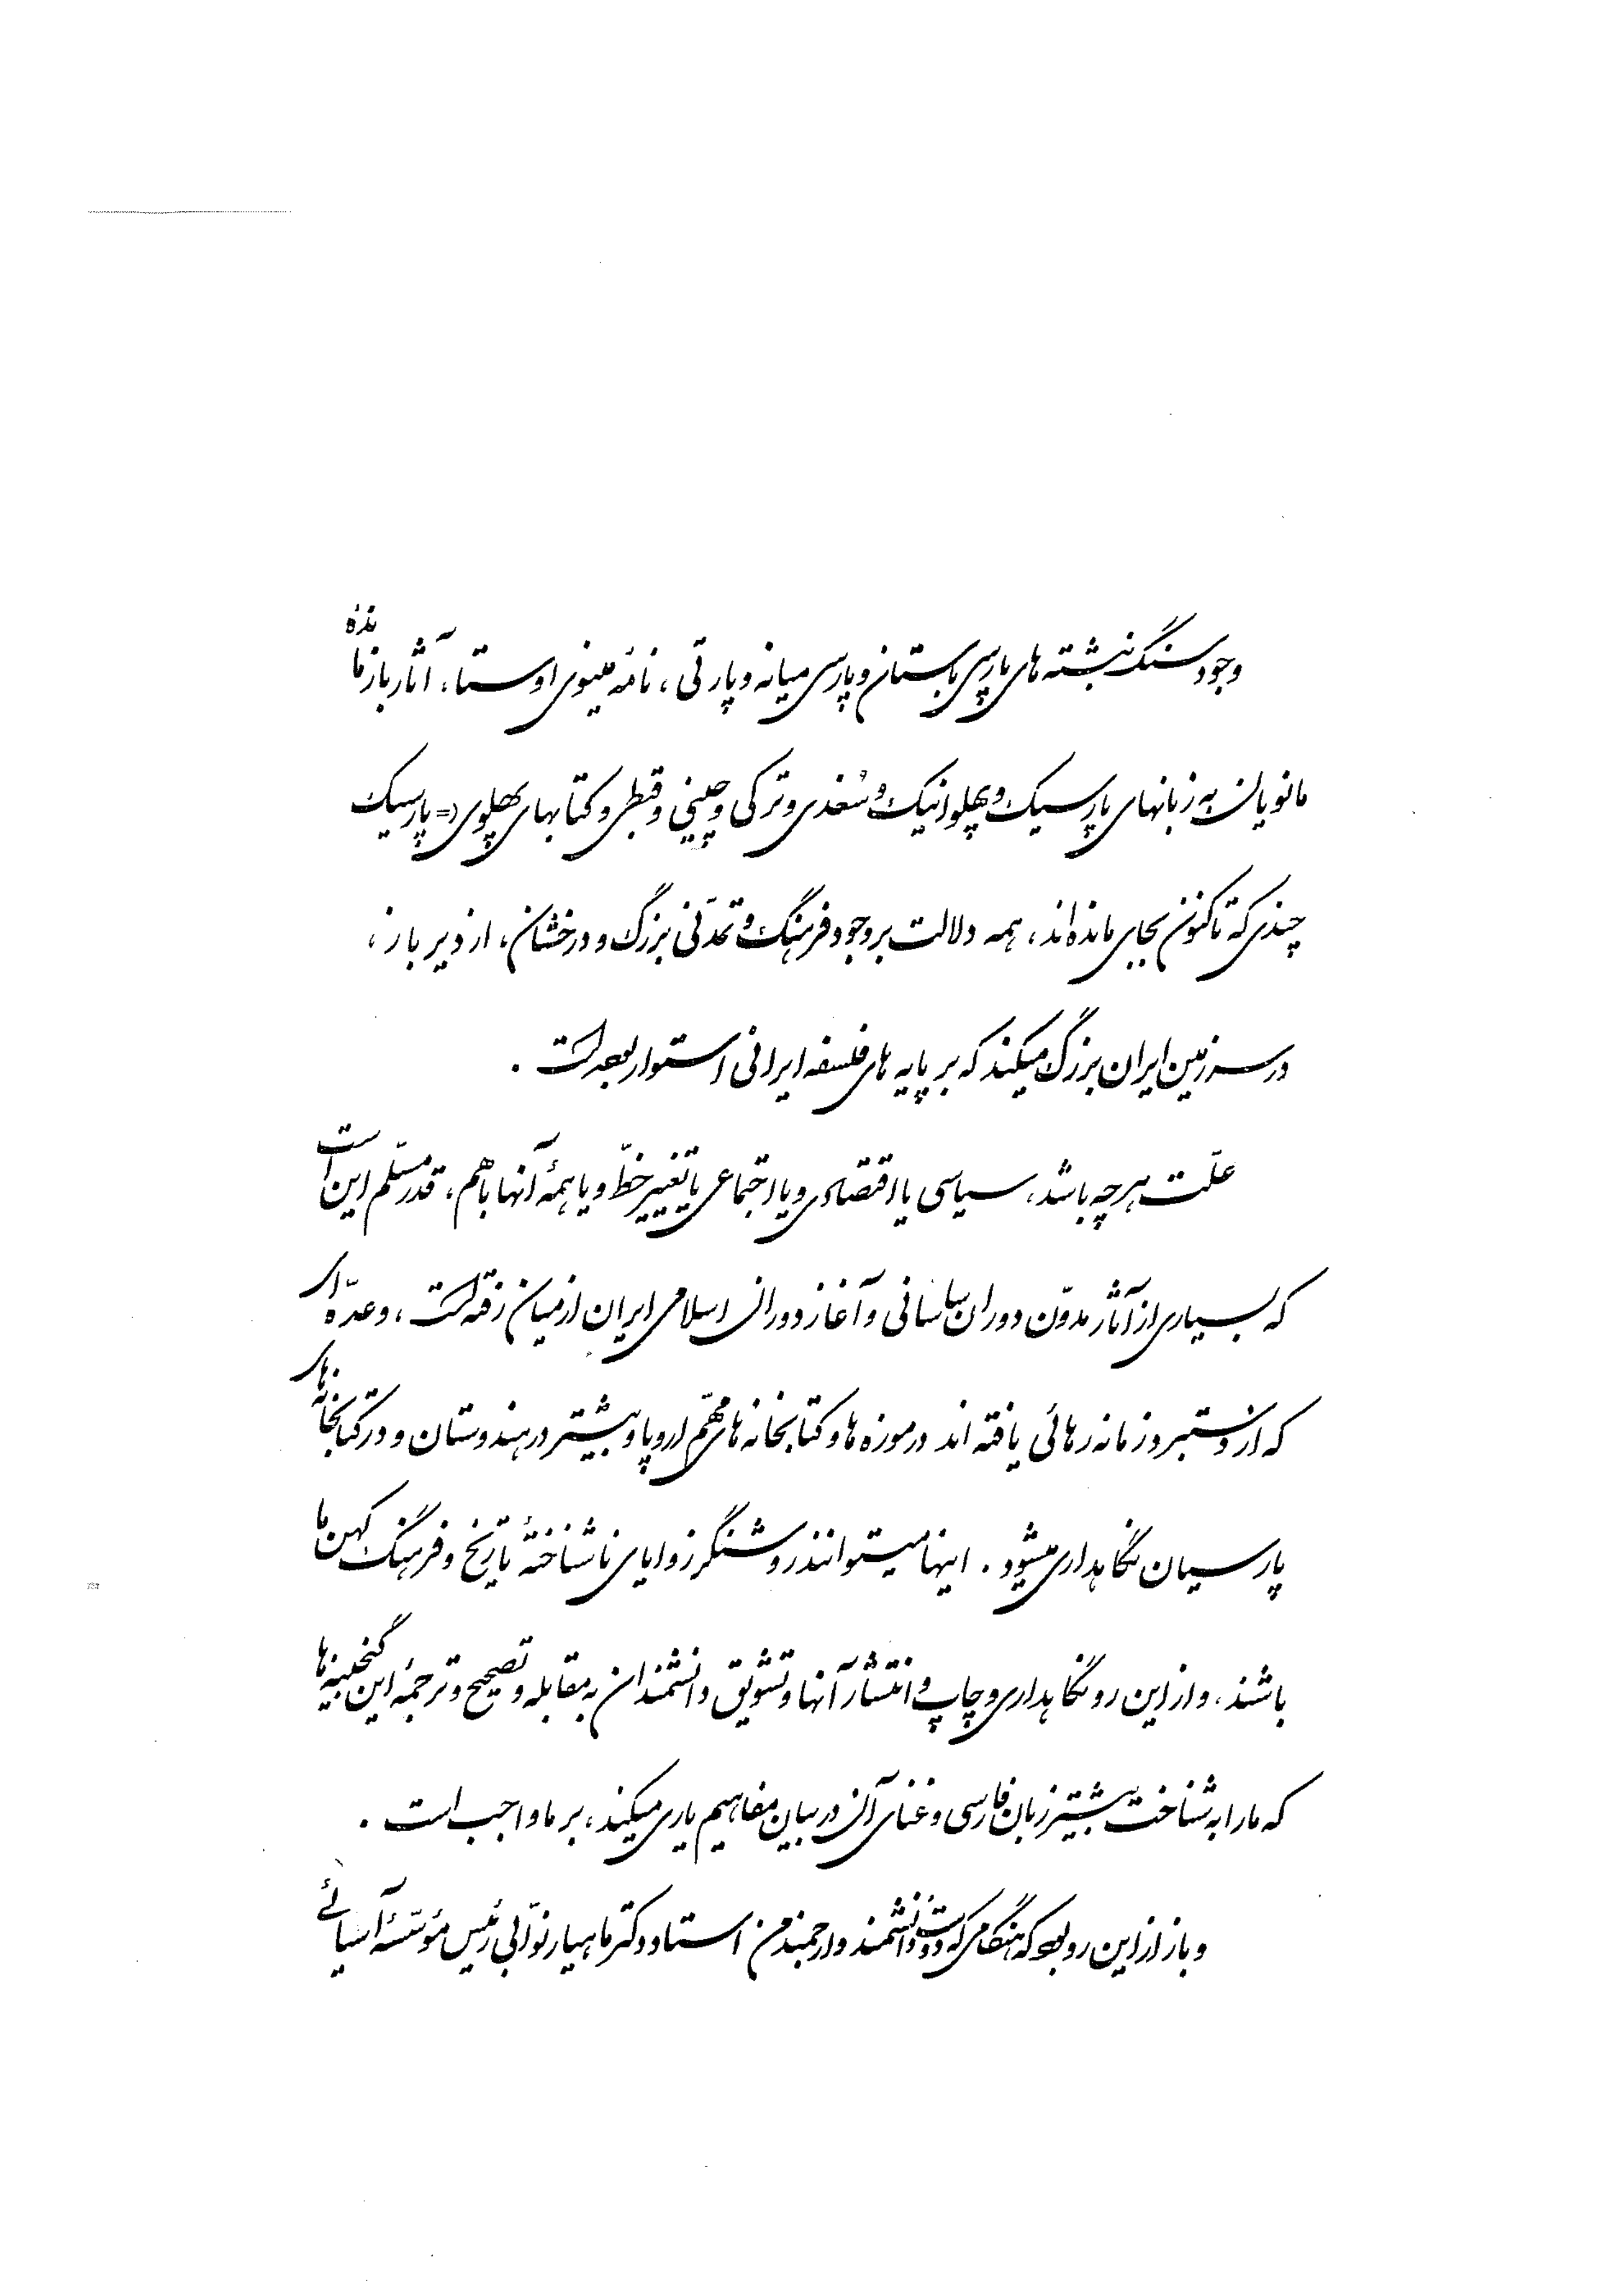 وجود سنگ نبشته های پارسی باستان و پارسی میانه و پارتی، نامهٔ مینوی اوستا، آثار بازماندهٔ
مانویان به زبانهای پارسیک و پهلوانیک و سُغدی و ترکی و چینی و قبطی و کتابهای پهلوی (= پارسیک
چندی که تا کنون بجای مانده‌اند، همه دلالت بر وجود فرهنگ و تمدّنی بزرگ و درخشان، از دیر باز،
در سرزمین ایران بزرگ میکند که بر پایه های فلسفه ایرانی استوار بوده است.
علّت هر چه باشد، سیاسی یا اقتصادی و یا اجتماعی یا تغییر خطّ و یا همهٔ آنها باهم، قدر مسلّم این است
که بسیاری از آثار مدوّن دوران ساسانی و آغاز دوران اسلامی ایران از میان رفته است، و عدّه‌ای
که از دستبرد زمانه رهائی یافته اند در موزه ها و کتابخانه های مهّم اروپا و بیشتر در هندوستان و در کتابخانه‌های
پارسیان نگاهداری میشود. اینها میتوانند روشنگر زوایای ناشناختهٔ تاریخ و فرهنگ کهن ما
باشند، و از این رو نگاهداری و چاپ و انتشار آنها و تشویق دانشمندان به مقابله و تصحیح و ترجمهٔ این گنجینه‌ها
که ما را به شناخت بیشتر زبان فارسی و غنای آن در بیان مفاهیم یاری میکند، بر ما واجب است.
و باز از این رو بود که هنگامی که دوست دانشمند و ارجمند من استاد دکتر ماهیار نوّابی رئیس مؤسّسهٔ آسیائی